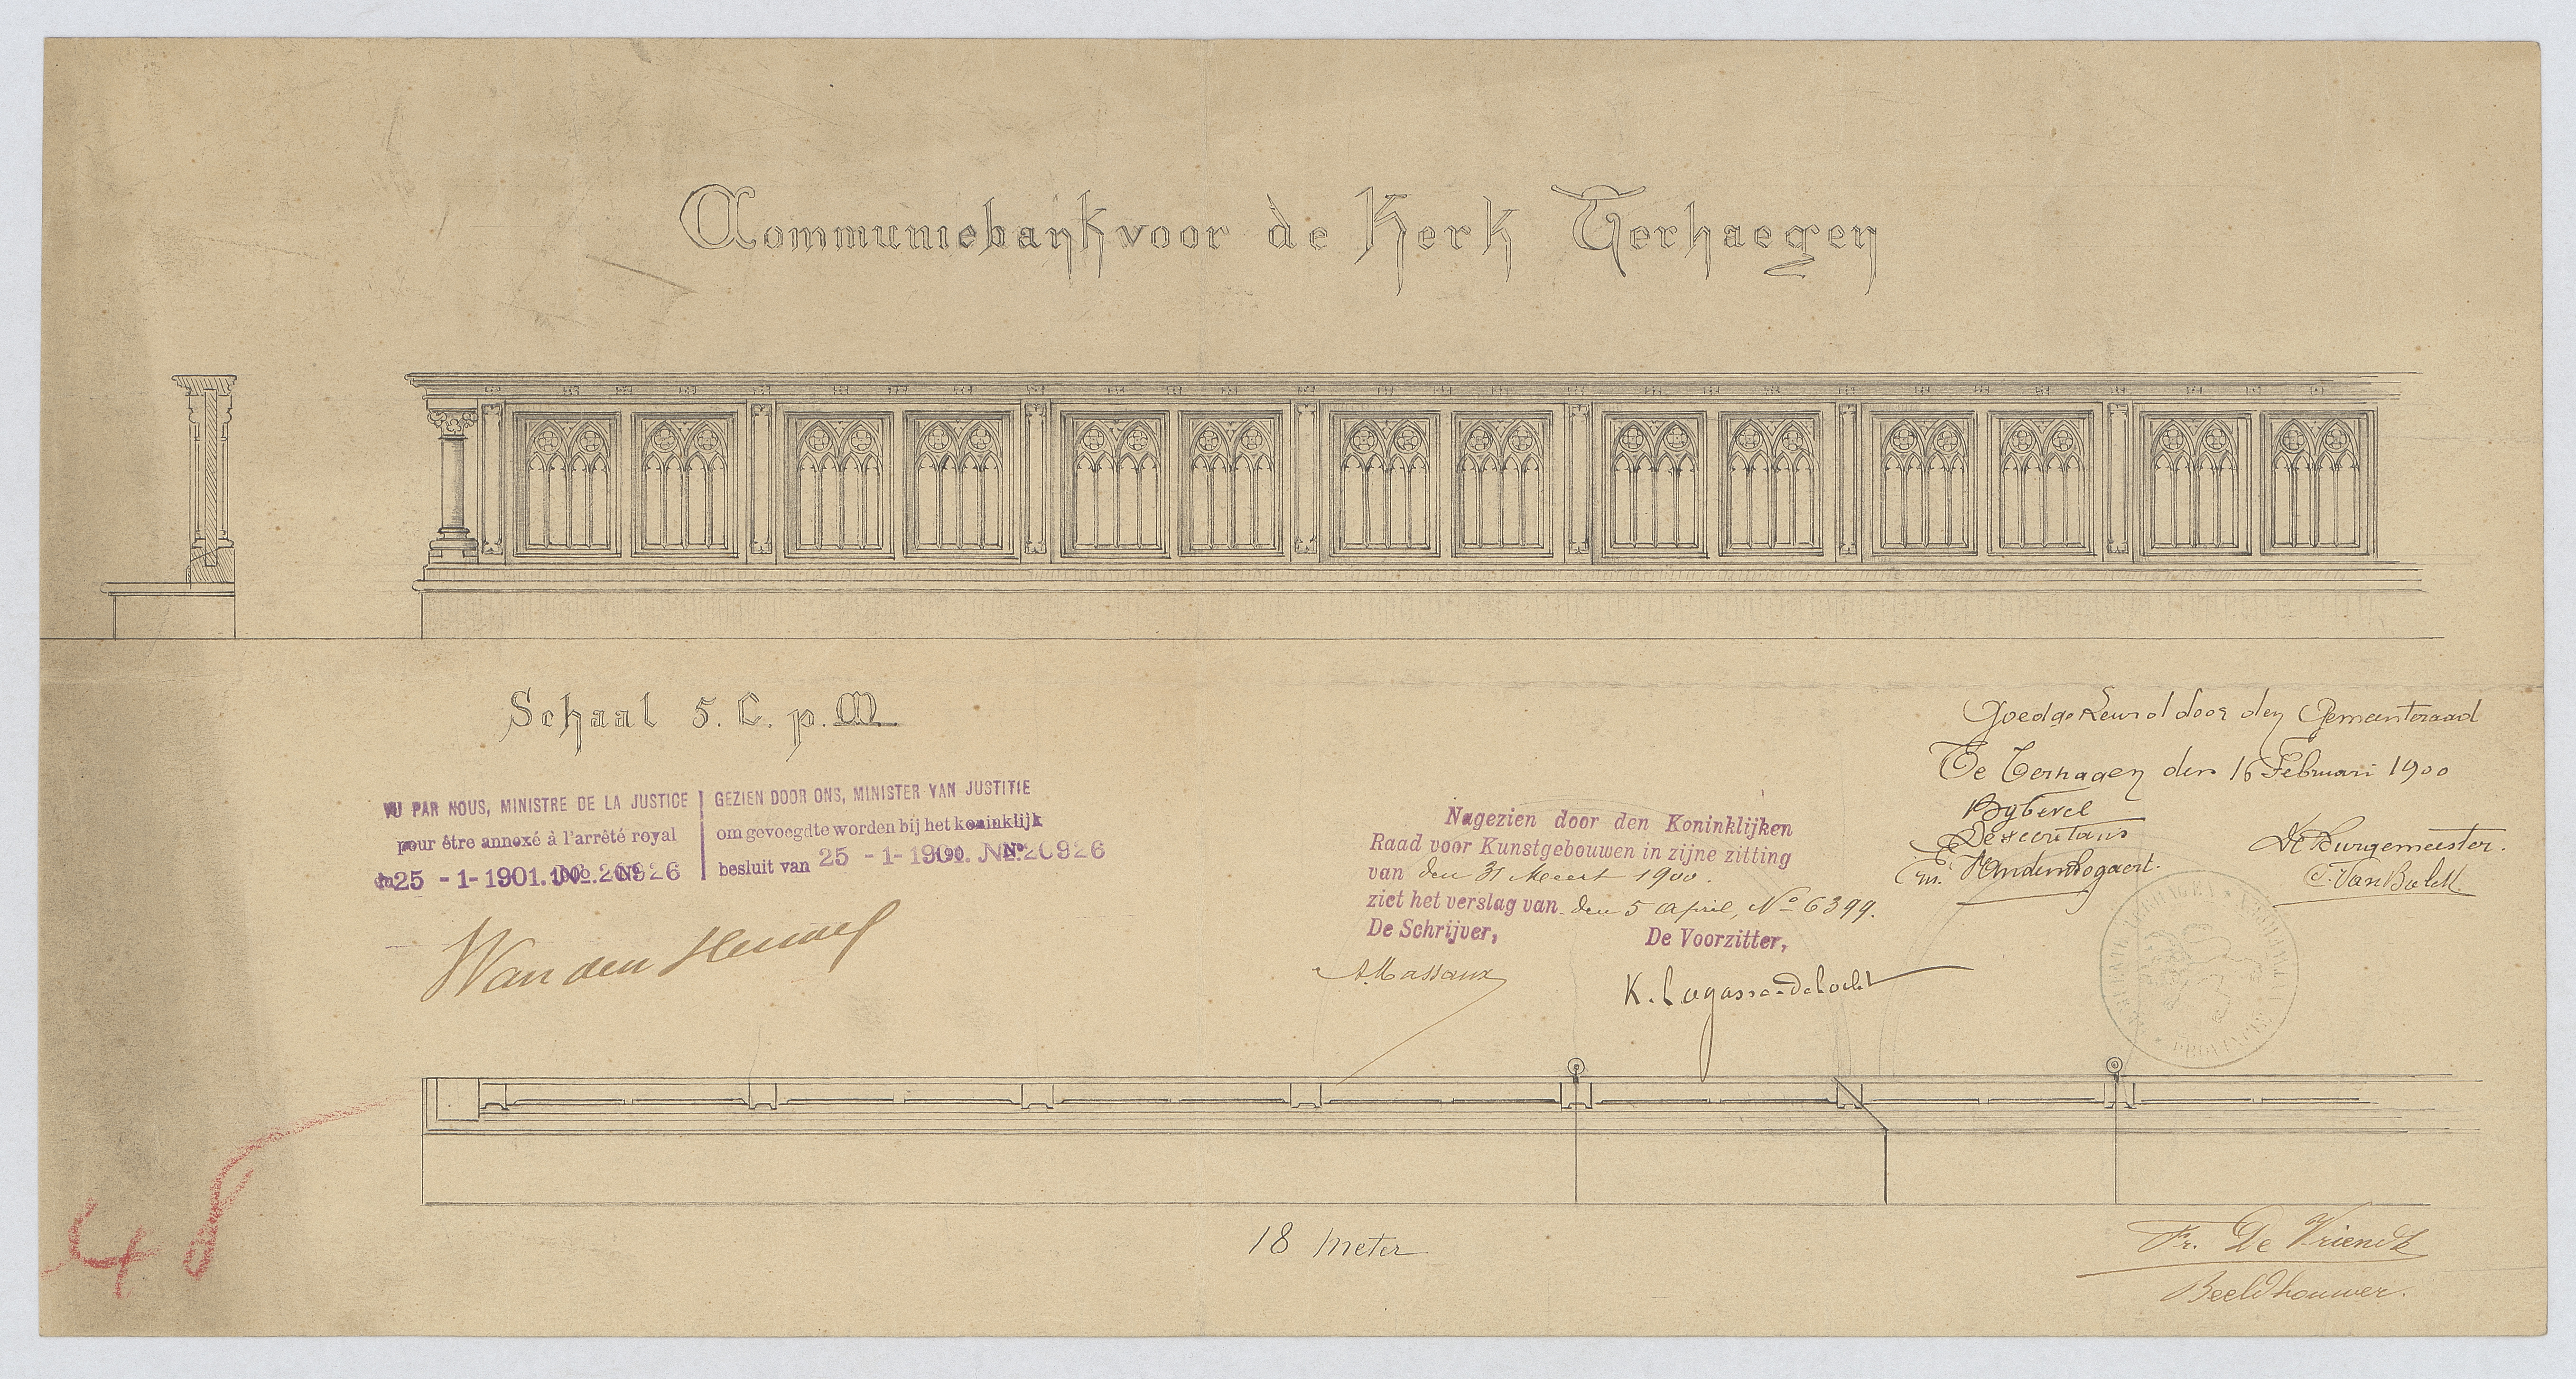 Communiebank voor de Kerk Terhaegen
Schaal 5. C. p. M
VU PAR NOUS, MINISTRE DE LA JUSTICE
pour être annexé à l'arrêté royal
du 25 - 1 - 1901. No. 20926
GEZIEN DOOR ONS, MINISTER VAN JUSTITIE
om gevoegd te worden bij het koninklijk
besluit van 25 - 1 - 1901. No. 20926
Van den Heuvel
Nagezien door den Koninklijken
Raad voor Kunstgebouwen in zijne zitting
van den 31 Meert 1900.
ziet het verslag van den 5 April, No 6399.
De Schrijver,
De Voorzitter,
A. Massaux
K. Lagasse-de Locht
Goedgekeurd door den Gemeenteraad
Te Terhagen den 16 Februari 1900
De Burgemeester.
18 meter
Fr. De Vriendt
Beeldhouwer.
48